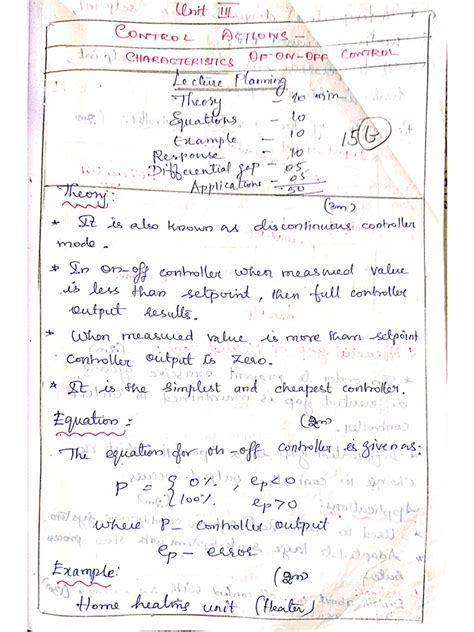 Unit III
CONTROL ACTIONS -
CHARACTERISTICS OF ON-OFF CONTROL
Lecture Planning
Theory - 10 min
Equations - 10
Example - 10
Response - 10
Differential gap - 05
Applications - 05
50
156
Theory: (2m)
* It is also known as discontinuous controller
mode.
* In on-off controller when measured value
is less than setpoint, then full controller
output results.
* When measured value is more than setpoint
controller output is zero.
* It is the simplest and cheapest controller.
Equation: (2m)
The equation for on-off controller is given as:
P = { 0%, ep<0
100%, ep>0
where P - controller output
ep - error
Example: (2m)
Home heating unit (Heater)